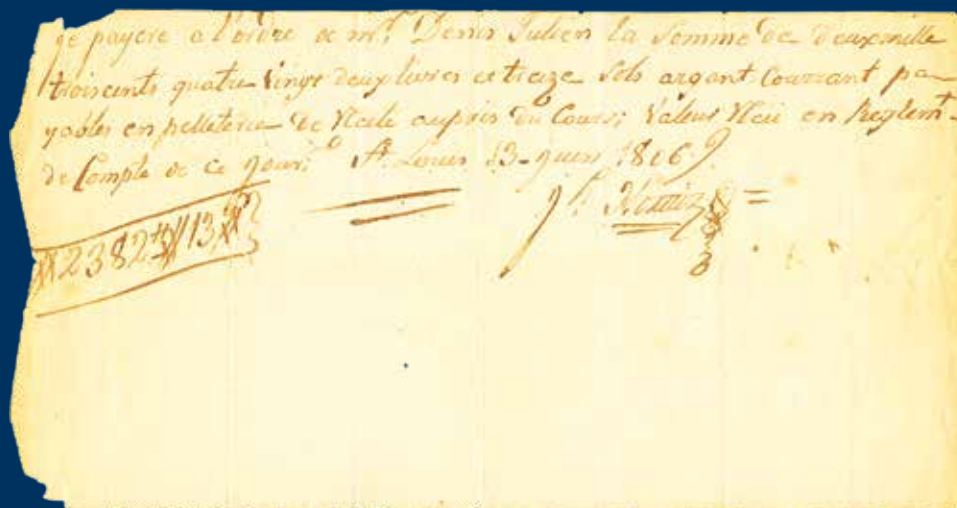 je payere a l'ordre de mr. Denis Julien la Somme de deuxmille
troiscents quatre Vingt deux livres et treize Sols argant Courrant pa-
yables en pelleterie de au prix du Cours; Valeur en Reglemt.
de Compte de ce jour; St. Louis 13 juin 1806
2382 13